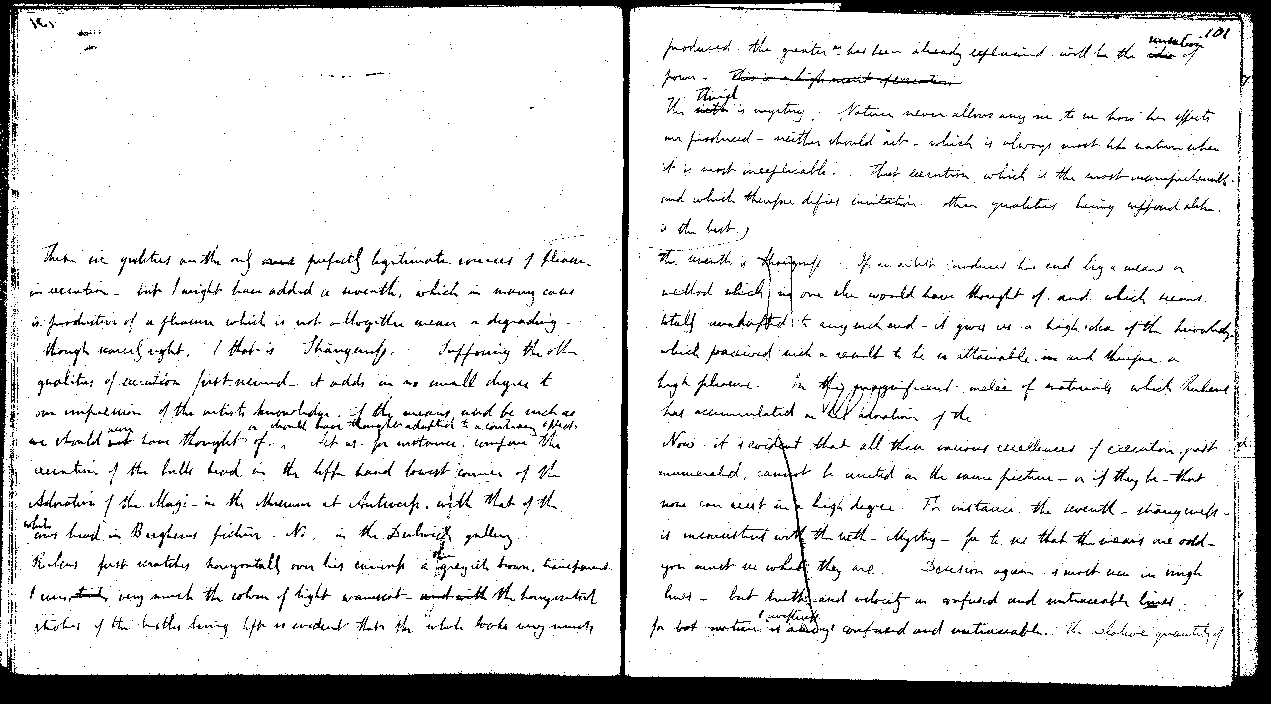 These six qualities are the only perfectly legitimate sources of pleasure
in execution - but I might have added a seventh, which in many cases
is productive of a pleasure which is not altogether mean or degrading -
though scarcely right. I that is Strangeness. Supposing the other
qualities of execution first secured - it adds in no small degree to
our impression of the artists knowledge, if the means used be such as
or should have thought adapted to a contrary effect.
we should never have thought of. Let us for instance, compare the
execution of the bulls head in the left hand lowest corner of the
Adoration of the Magi - in the Museum at Antwerp, with that of the
white
head in Berghems picture. No. in the Dulwich gallery.
Rubens first scratches horizontally over his canvass a greyish brown, transparent
very much the colour of light wainscot - and with the horizontal
strokes of the bristles being left so evident that the whole looks very much
101
produced. the greater as has been already explained will be the sensation of
power. This is a high merit of execution
The sixth is mystery. Nature never allows any one to see how her effects
are produced - neither should art - which is always most like nature when
it is most inexplicable. That execution which is the most incomprehensible.
and which therefore defies imitation other qualities being supposed alike.
is the best.
the seventh is strangeness. If an artist produces his end by a means or
method which no one else would have thought of. and which seems
totally unadapted to any such end - it gives us a high idea of the knowledge
which perceived such a result to be so attainable. and therefore a
high pleasure. In the magnificent melée of materials which Rubens
has accumulated in his adoration of the
Now it is evident that all these various excellences of execution first
enumerated, cannot be united in the same picture - or if they be - that
none can exist in a high degree. For instance, the seventh - strangeness -
is inconsistent with the sixth - Mystery - for to see that the means are odd -
you must see what they are. Decision again is most seen in single
lines - but truth and velocity in confused and untraceable lines.
for bold motion is always confused and untraceable. The relative quantity of